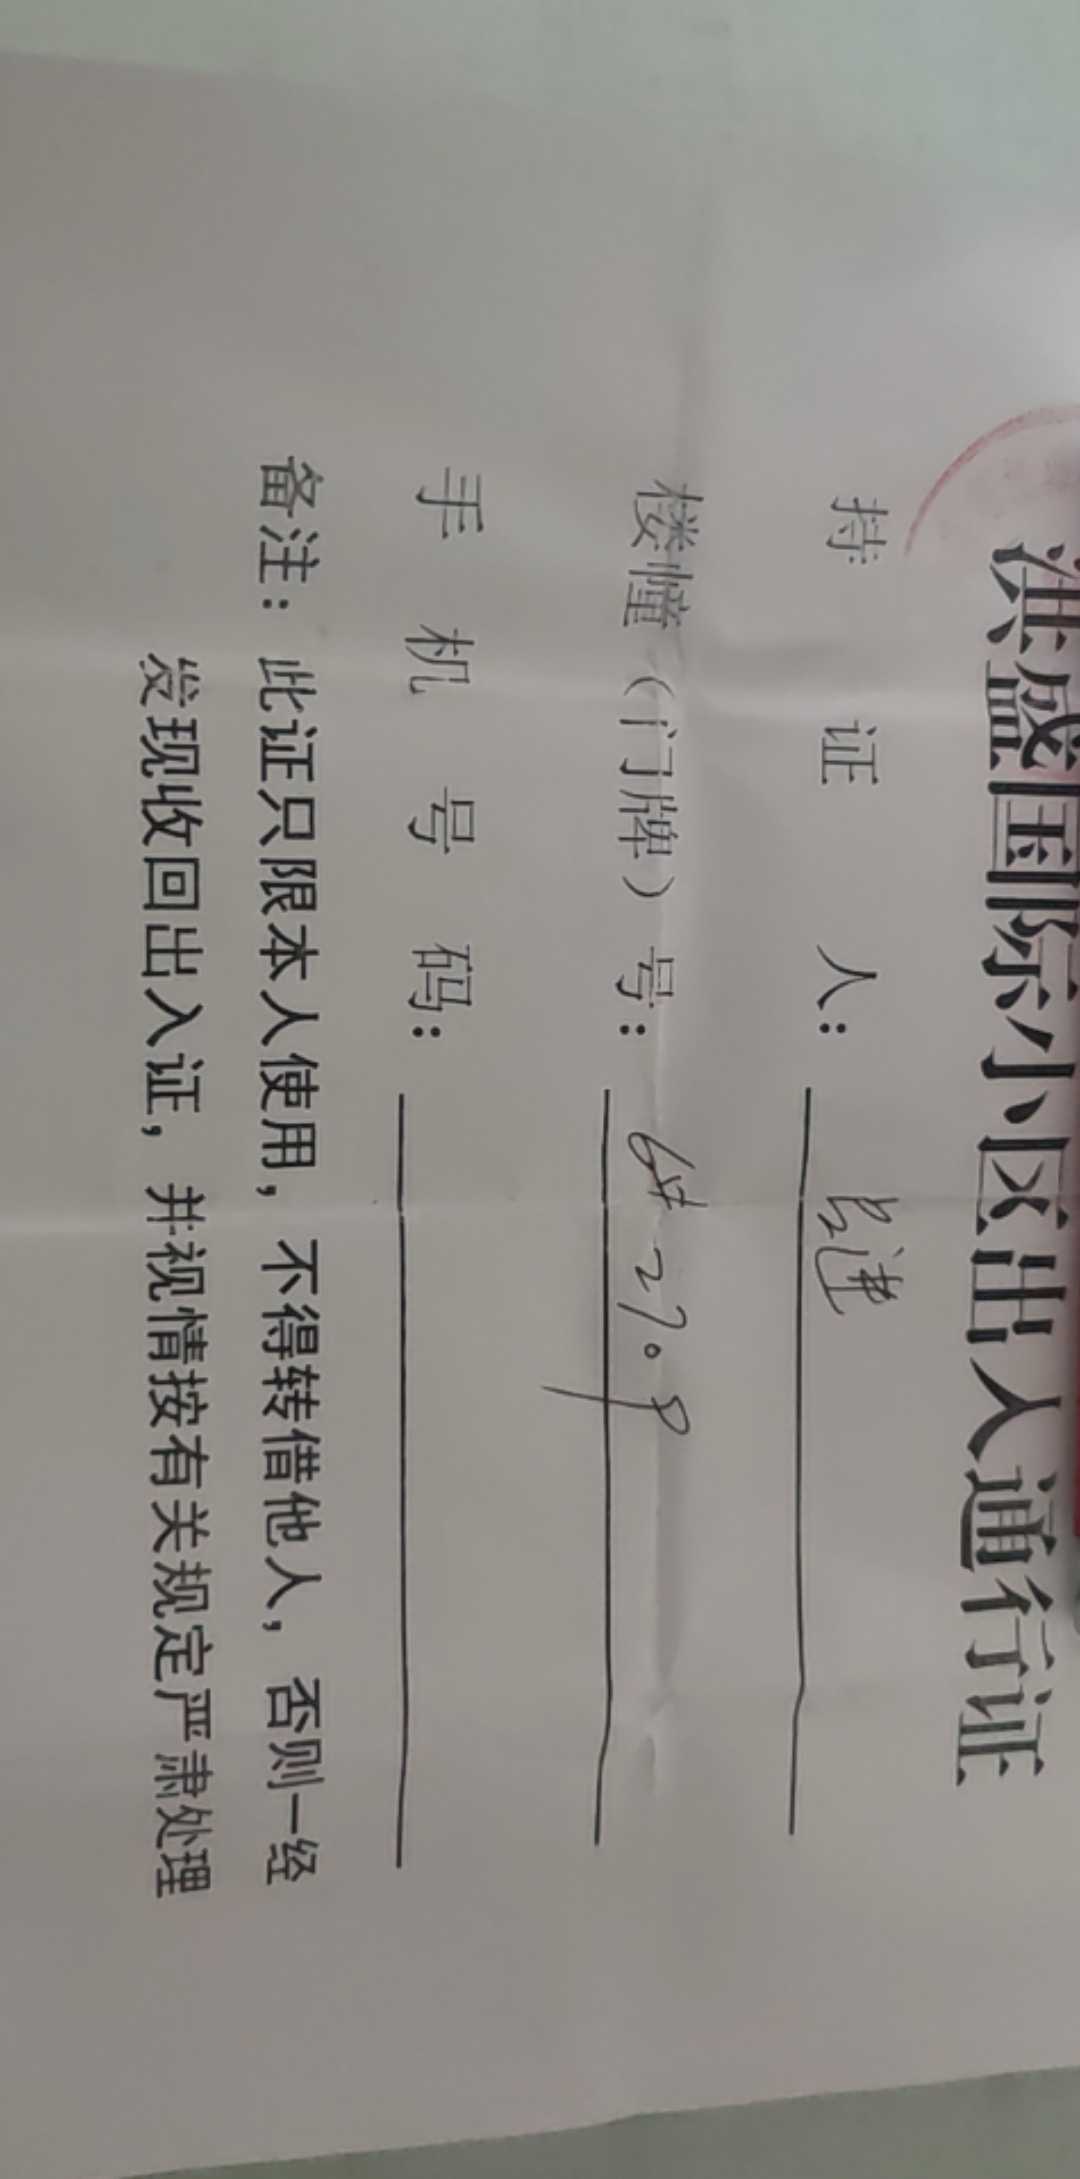 洪盛国际小区出入通行证
持证人：吕进
楼幢（门牌）号：6# 2709
手机号码：
备注：此证只限本人使用，不得转借他人，否则一经
发现收回出入证，并视情按有关规定严肃处理